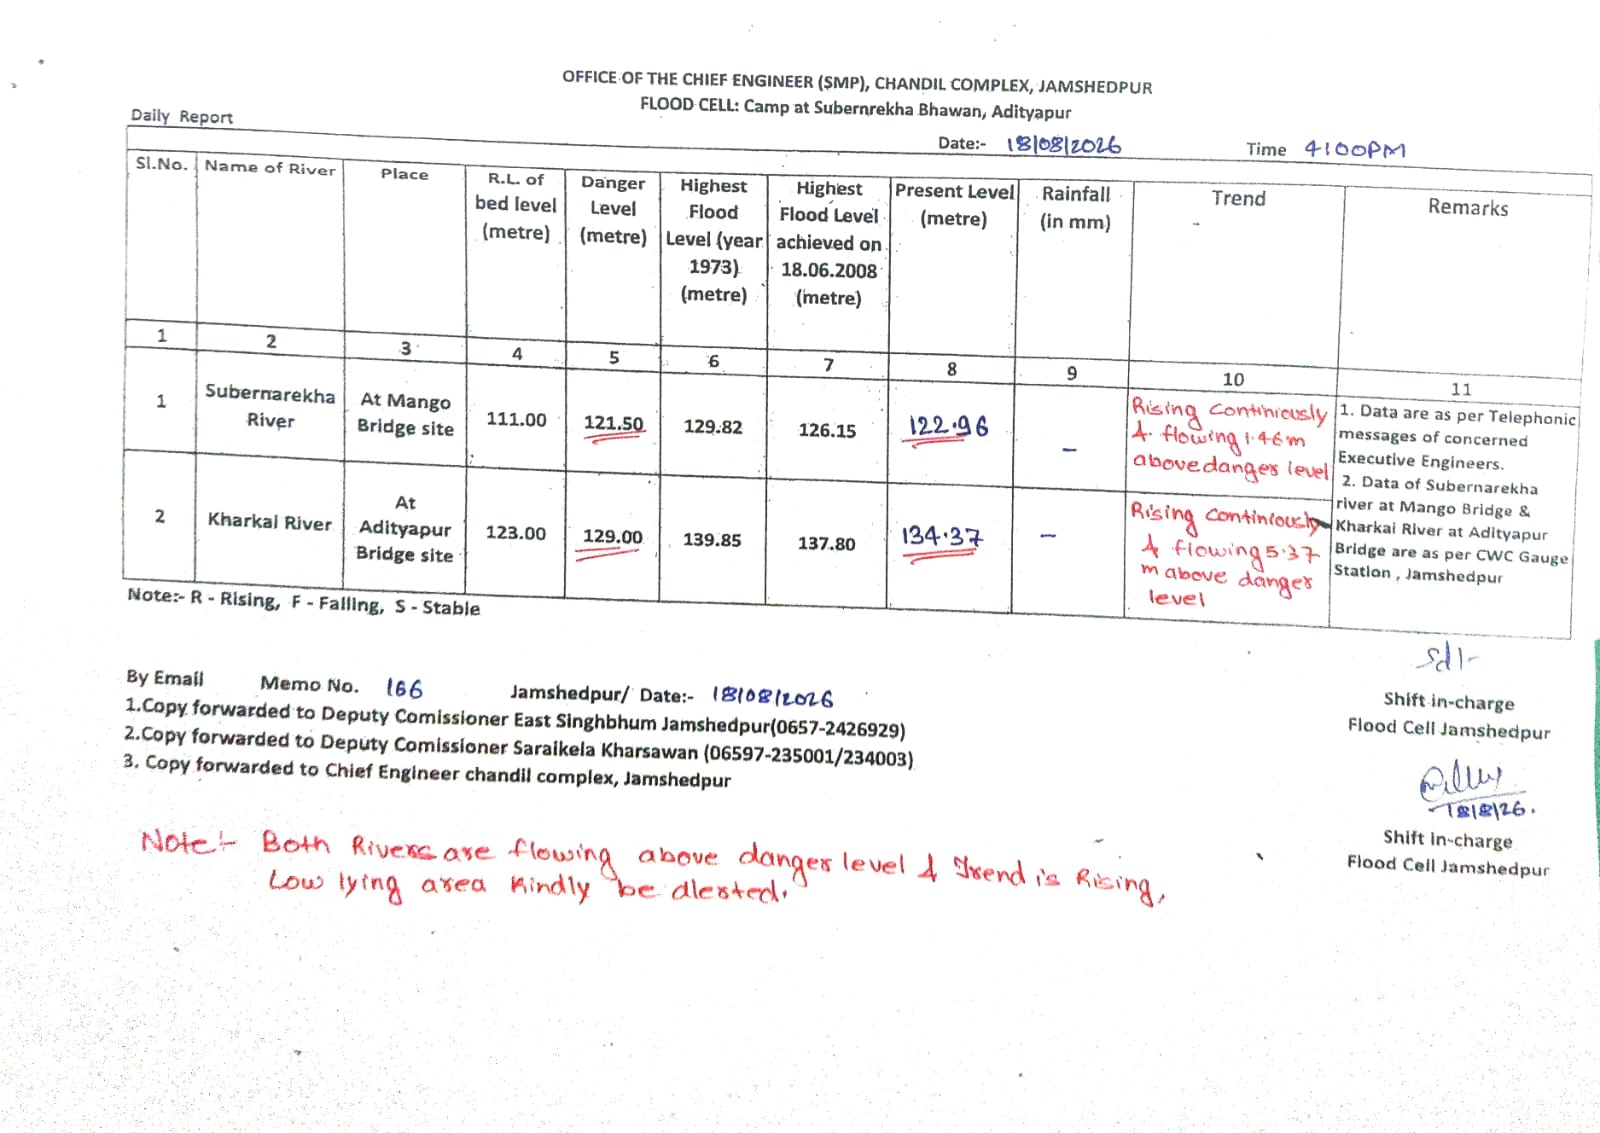 OFFICE OF THE CHIEF ENGINEER (SMP), CHANDIL COMPLEX, JAMSHEDPUR
FLOOD CELL: Camp at Subernrekha Bhawan, Adityapur
Daily Report
Date:- 18/08/2026 Time 4:00PM
Sl.No. Name of River Place R.L. of bed level (metre) Danger Level (metre) Highest Flood Level (year 1973) (metre) Highest Flood Level achieved on 18.06.2008 (metre) Present Level (metre) Rainfall (in mm) Trend Remarks
1 2 3 4 5 6 7 8 9 10 11
1 Subernarekha River At Mango Bridge site 111.00 121.50 129.82 126.15 122.96 – Rising Continiously & flowing 1.46m above danger level
2 Kharkai River At Adityapur Bridge site 123.00 129.00 139.85 137.80 134.37 – Rising Continiously & flowing 5.37 m above danger level
1. Data are as per Telephonic
messages of concerned
Executive Engineers.
2. Data of Subernarekha
river at Mango Bridge &
Kharkai River at Adityapur
Bridge are as per CWC Gauge
Station , Jamshedpur
Note:- R - Rising, F - Falling, S - Stable
Sd/-
Shift in-charge
Flood Cell Jamshedpur
By Email Memo No. 166 Jamshedpur/ Date:- 18/08/2026
1.Copy forwarded to Deputy Comissioner East Singhbhum Jamshedpur(0657-2426929)
2.Copy forwarded to Deputy Comissioner Saraikela Kharsawan (06597-235001/234003)
3. Copy forwarded to Chief Engineer chandil complex, Jamshedpur
18/8/26.
Shift in-charge
Flood Cell Jamshedpur
Note:- Both Rivers are flowing above danger level & Trend is Rising,
Low lying area Kindly be alerted.